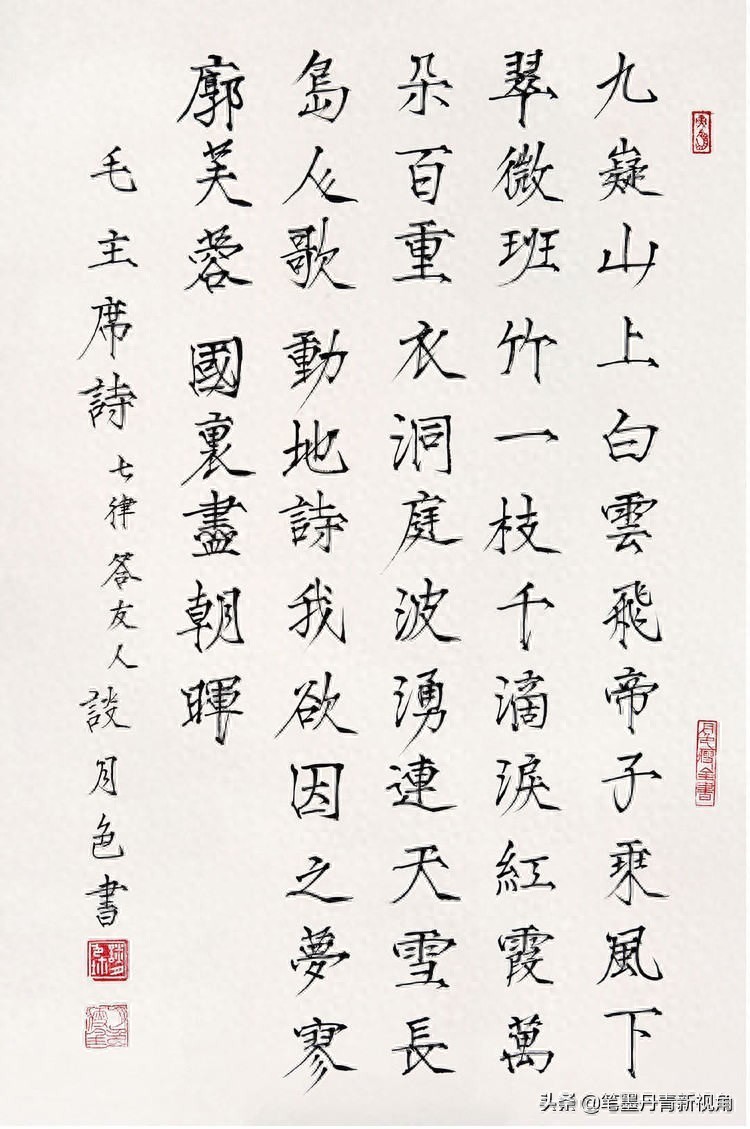 九嶷山上白雲飛帝子乘風下
翠微班竹一枝千滴淚紅霞萬
朵百重衣洞庭波湧連天雪長
島人歌動地詩我欲因之夢寥
廓芙蓉國裏盡朝暉
毛主席詩七律答友人談月色書
月色瘦金書
头条 @笔墨丹青新视角